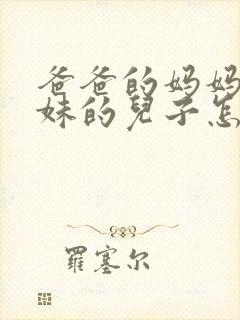 爸爸的妈妈
妹的兒子怎
羅塞尔